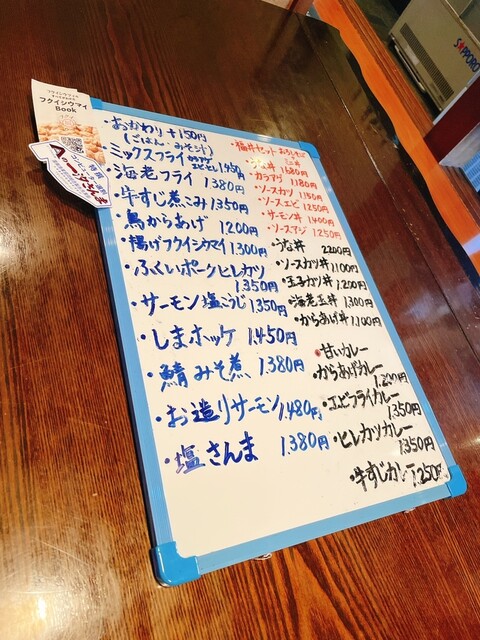 フクイシウマイ
Book
・おかわり+150円
(ごはん・みそ汁)
・ミックスフライ 1,450円
・海老フライ 1380円
・牛すじ煮こみ 1350円
・鳥からあげ 1200円
・揚げフクイシウマイ 1300円
・ふくいポークヒレカツ
1350円
・サーモン塩こうじ 1350円
・しまホッケ 1,450円
・鯖みそ煮 1,380円
・お造りサーモン 1,480円
・塩さんま 1,380円
・福井セット おろしそば
ミニ丼
・うな丼 1680円
・カラアゲ 1180円
・ソースカツ 1150円
・ソースエビ 1250円
・サーモン丼 1400円
・ソースアジ 1250円
・うな丼 2200円
・ソースカツ丼 1100円
・玉子カツ丼 1200円
・海老玉丼 1300円
・からあげ丼 1,100円
・甘いカレー
・からあげカレー
1,200円
・エビフライカレー
1,350円
・ヒレカツカレー
1,350円
・牛すじカレー 1,250円
SAPPORO